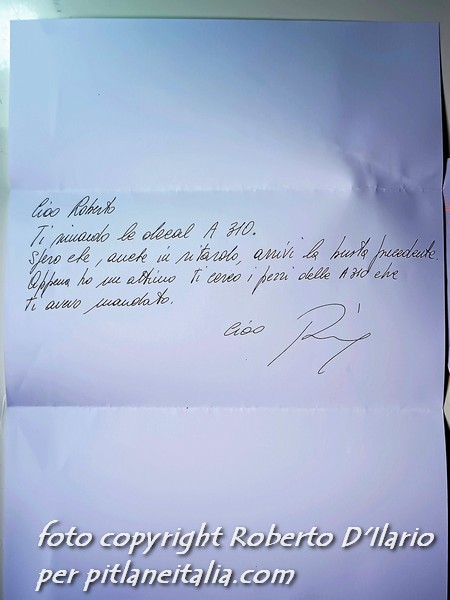 Ciao Roberto
Ti rimando le decal A 310.
Spero che, anche in ritardo, arrivi la busta precedente.
Appena ho un attimo Ti cerco i pezzi della A310 che
Ti avevo mandato.
Ciao
foto copyright Roberto D'Ilario
per pitlaneitalia.com